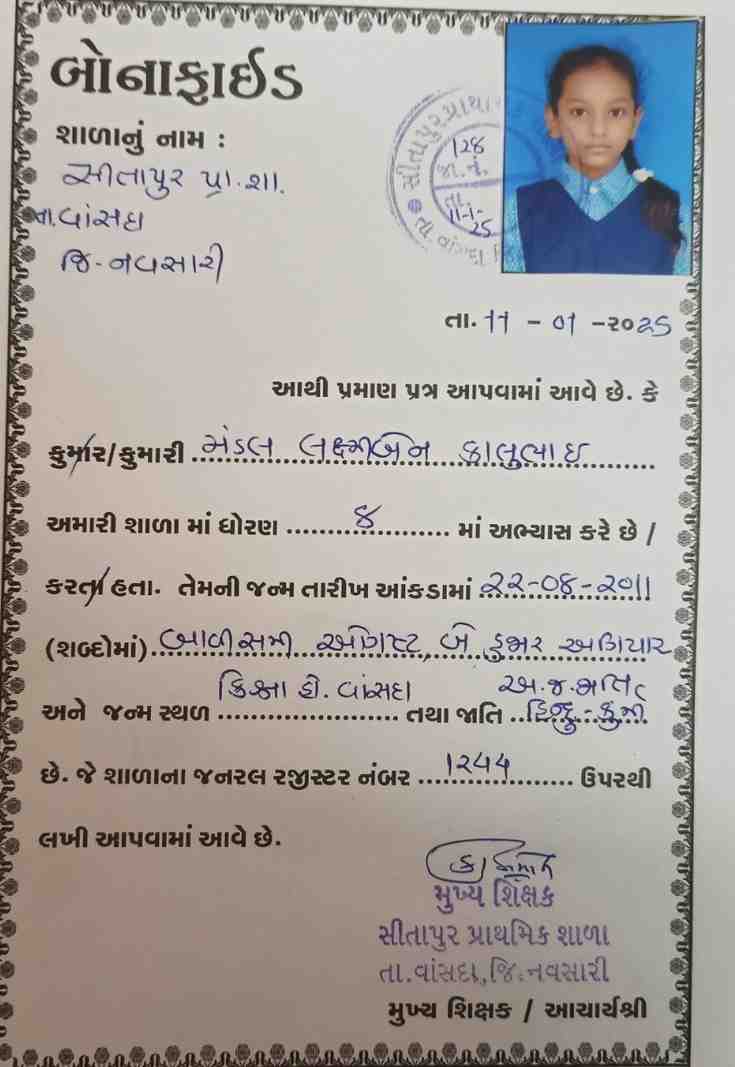 બોનાફાઈડ
શાળાનું નામ :
સીતાપુર પ્રા.શા.
તા.વાંસદા
જિ-નવસારી
સીતાપુર પ્રાથ
128
જા.નં.
તા.
11-1-25
તા. વાંસદા
તા. 11 - 01 -૨૦25
આથી પ્રમાણ પત્ર આપવામાં આવે છે. કે
કુમાર/કુમારી મંડલ લક્ષ્મીબેન કાલુભાઇ
અમારી શાળા માં ધોરણ ૪ માં અભ્યાસ કરે છે /
કરતા હતા. તેમની જન્મ તારીખ આંકડામાં ૨૨-૦૪-૨૦11
(શબ્દોમાં) બાવીસમી ઓગસ્ટ, બે હજાર અગિયાર
અને જન્મ સ્થળ વાંસદા તથા જાતિ અ.જ.જાતિ
હિન્દુ-
છે. જે શાળાના જનરલ રજીસ્ટર નંબર 1૨૪૪ ઉપરથી
લખી આપવામાં આવે છે.
મુખ્ય શિક્ષક
સીતાપુર પ્રાથમિક શાળા
તા.વાંસદા,જિ.નવસારી
મુખ્ય શિક્ષક / આચાર્યશ્રી